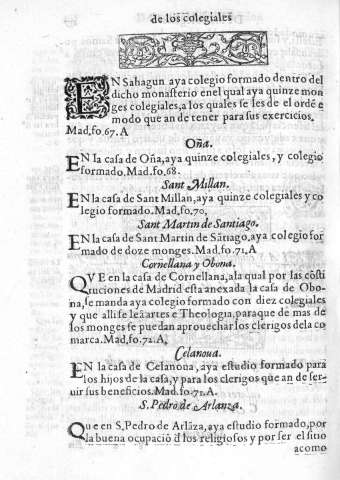 de los colegiales
EN Sahagun aya colegio formado dentro del
dicho monasterio enel qual aya quinze mon
ges colegiales, a los quales se les de el ordē e
modo que an de tener para sus exercicios.
Mad,fo,67.A
Oña.
EN la casa de Oña, aya quinze colegiales, y colegio
formado.Mad.fo,68.
Sant Millan.
EN la casa de Sant Millan, aya quinze colegiales y co
legio formado.Mad,fo,70,
Sant Martin de Santiago.
EN la casa de Sant Martin de Sātiago, aya colegio for
mado de doze monges. Mad.fo.71,A
Cornellana y Obona.
QVE en la casa de Cornellana, ala qual por las cōsti
tuciones de Madrid esta anexada la casa de Obo-
na, se manda aya colegio formado con diez colegiales
y que alli se lea artes e Theologia, para que de mas de
los monges se puedan aprouechar los clerigos dela co
marca.Mad,fo.72.A.
Celanoua.
EN la casa de Celanoua, aya estudio formado para
los hijos de la casa, y para los clerigos que an de ser-
uir sus beneficios.Mad.fo.71.A.
S.Pedro de Arlanza.
Que en S.Pedro de Arlāza, aya estudio formado, por
la buena ocupaciō d̄ los religiosos y por ser el sitio
acomo